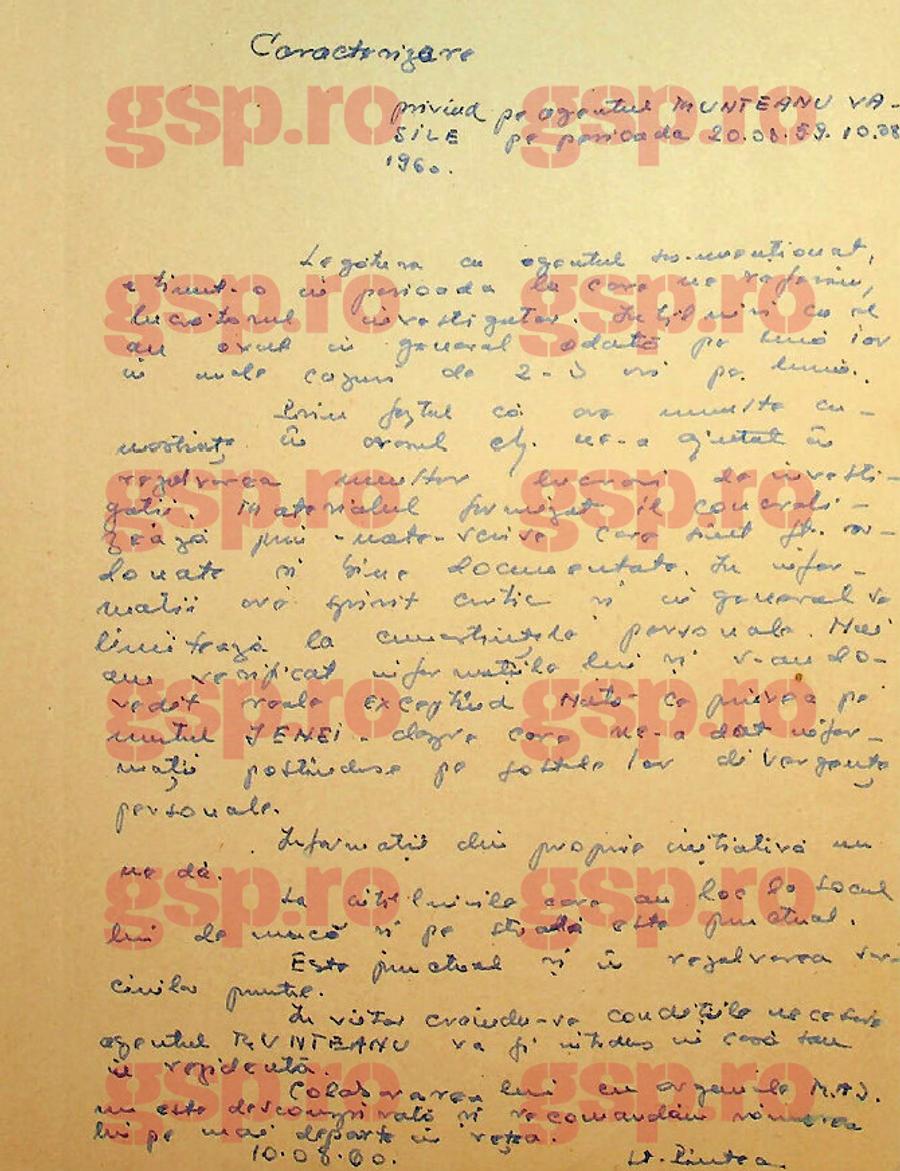 Caracterizare
privind pe agentul MUNTEANU VA-
SILE pe perioada 20.08.59. 10.08
1960.
Legătura cu agentul sus-menționat,
a ținut-o în perioada la care ne referim,
lucrătorul investigator. Întîlniri cu el
au avut în general odată pe lună iar
în unele cazuri de 2-3 ori pe lună.
Prin faptul că are multe cu-
noștințe în orașul ne-a ajutat în
rezolvarea multor lucrări de investi-
gații. Materialul furnizat îl concreti-
zează prin note scrise care sînt
și bine documentate. In infor-
mații are spirit critic și în general se
limitează la cunoștințele personale. Noi
am verificat informațiile lui și s-au do-
vedit reale exceptînd Nota ce privea pe
numitul JENEI. despre care ne-a dat infor-
mații pe divergențe
personale.
Informații din proprie inițiativă nu
ne dă.
La întîlnirile care au loc la locul
lui de muncă și pe stradă este punctual.
Este punctual și în rezolvarea sar-
cinilor primite.
In viitor creindu-se condițiile necesare
agentul MUNTEANU va fi întîlnit în casă sau
în rezidență.
Colaborarea lui cu organele M.A.I.
nu este desconspirată și recomandăm rămînerea
lui pe mai departe în rețea.
10.08.60. Lt. Pintea
gsp.ro
gsp.ro
gsp.ro
gsp.ro
gsp.ro
gsp.ro
gsp.ro
gsp.ro
gsp.ro
gsp.ro
gsp.ro
gsp.ro